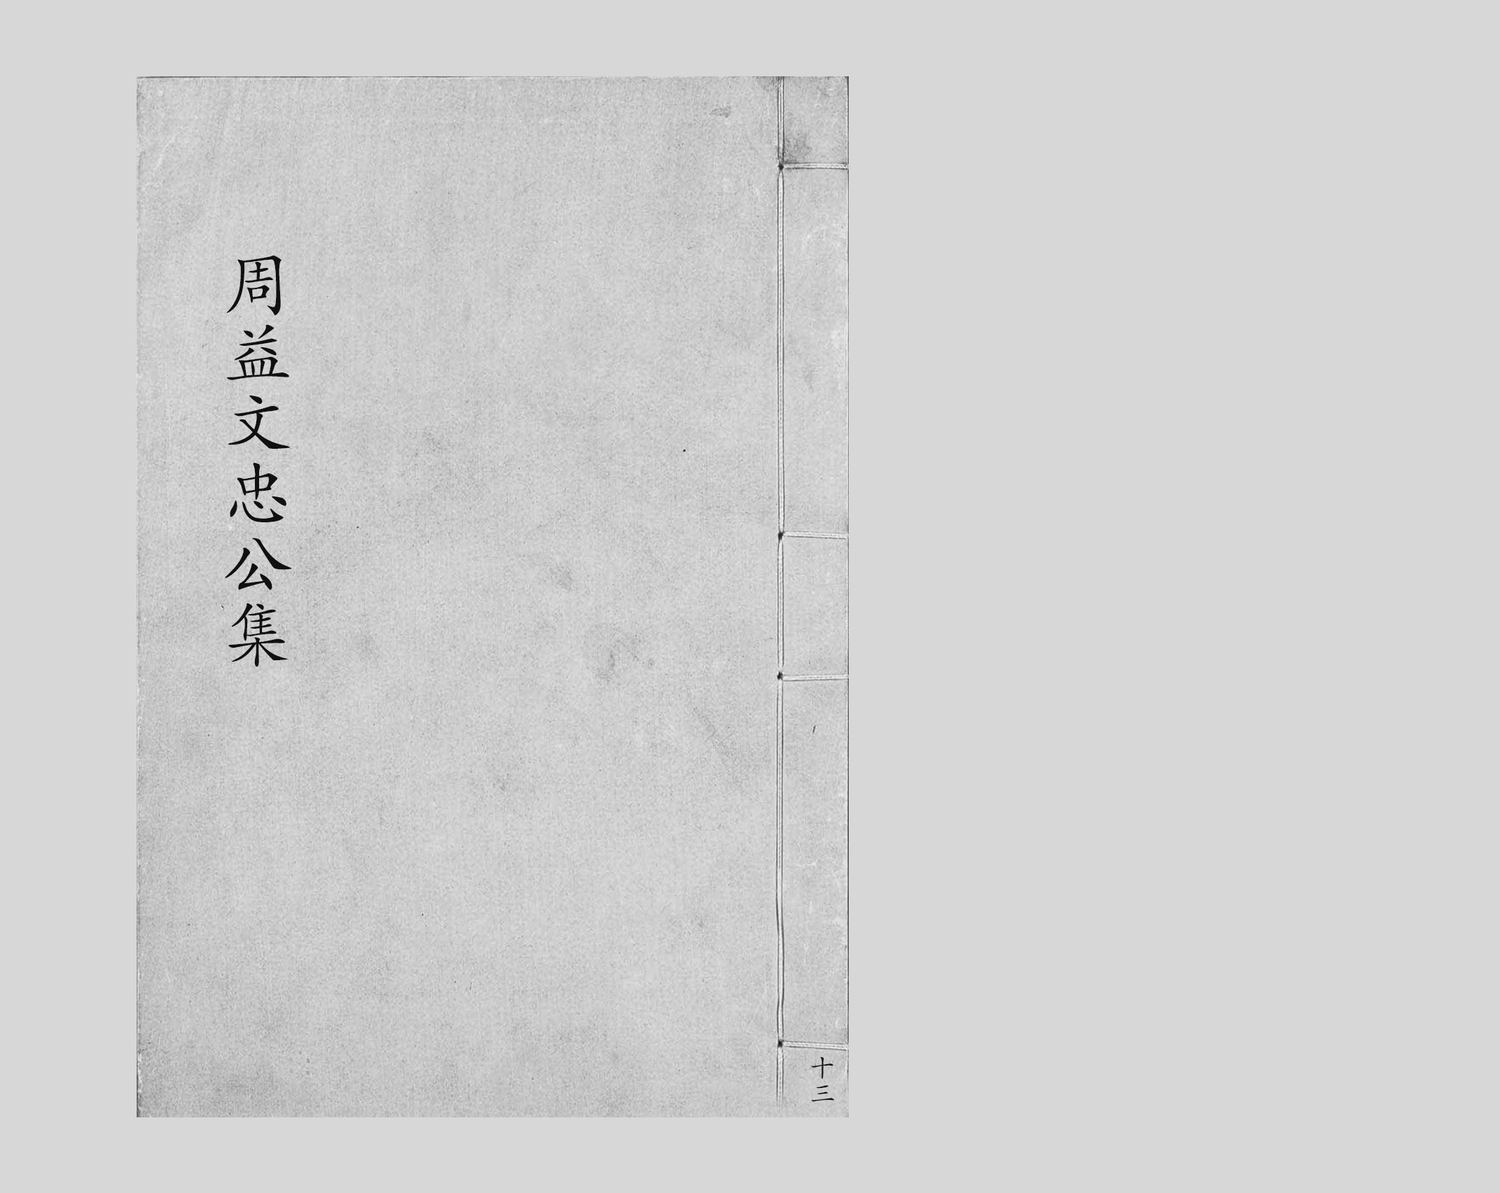 周益文忠公集
十三